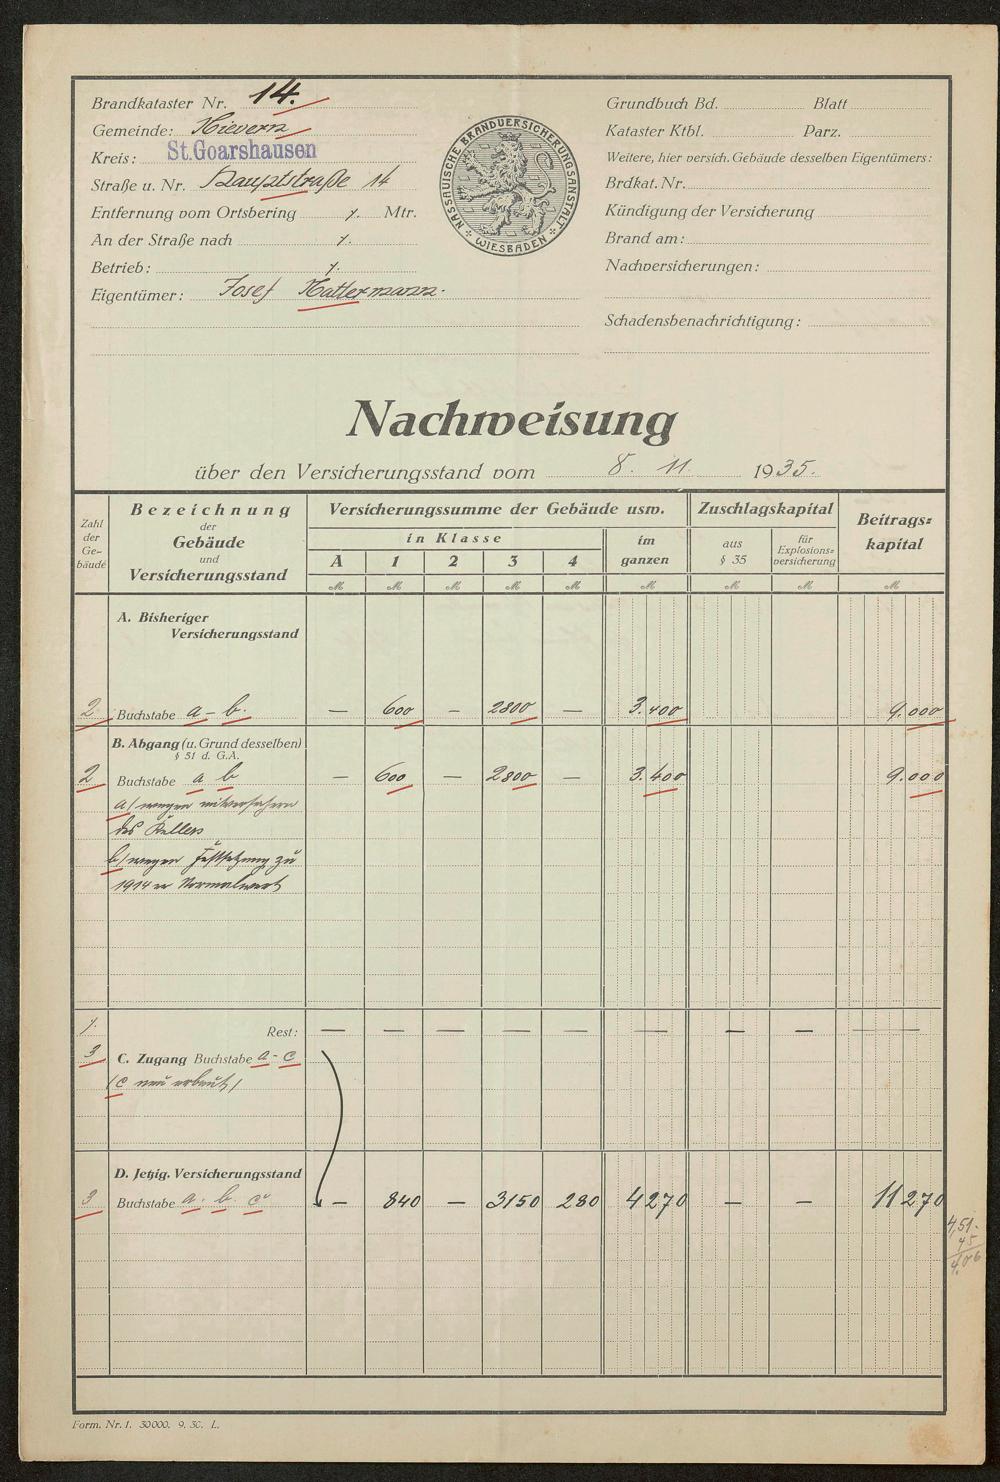 Brandkataster Nr. 14.
Gemeinde: Kievern
Kreis: St.Goarshausen
Straße u. Nr. Hauptstraße 14
Entfernung vom Ortsbering ⁒ Mtr.
An der Straße nach ⁒
Betrieb: ⁒
Eigentümer: Josef Kattermann.
NASSAUISCHE BRANDVERSICHERUNGSANSTALT
WIESBADEN
Grundbuch Bd. Blatt
Kataster Ktbl. Parz.
Weitere, hier versich. Gebäude desselben Eigentümers:
Brdkat. Nr.
Kündigung der Versicherung
Brand am:
Nachversicherungen:
Schadensbenachrichtigung:
Nachweisung
über den Versicherungsstand vom 8. 11. 1935.
Zahl der Ge-bäude
Bezeichnung der Gebäude und Versicherungsstand
Versicherungssumme der Gebäude usw.
in Klasse
A 1 2 3 4
im ganzen
Zuschlagskapital
aus § 35
für Explosions-versicherung
Beitrags-kapital
M M M M M M M M M
A. Bisheriger
Versicherungsstand
2 Buchstabe a - b. — 600 — 2800 — 3.400 9.000
B. Abgang (u. Grund desselben)
§ 51 d. G.A.
2 Buchstabe a b — 600 — 2800 — 3.400 9.000
a/ wegen
des Kellers
b/ wegen Festsetzung zu
1914er Normalwert
⁒ Rest: — — — — — — — — —
3 C. Zugang Buchstabe a - c
(c neu erbaut)
D. Jetzig. Versicherungsstand
3 Buchstabe a. b. c. — 840 — 3150 280 4270 — — 11270
4,51.
45
4.06
Form. Nr. 1. 30000. 9. 30. L.